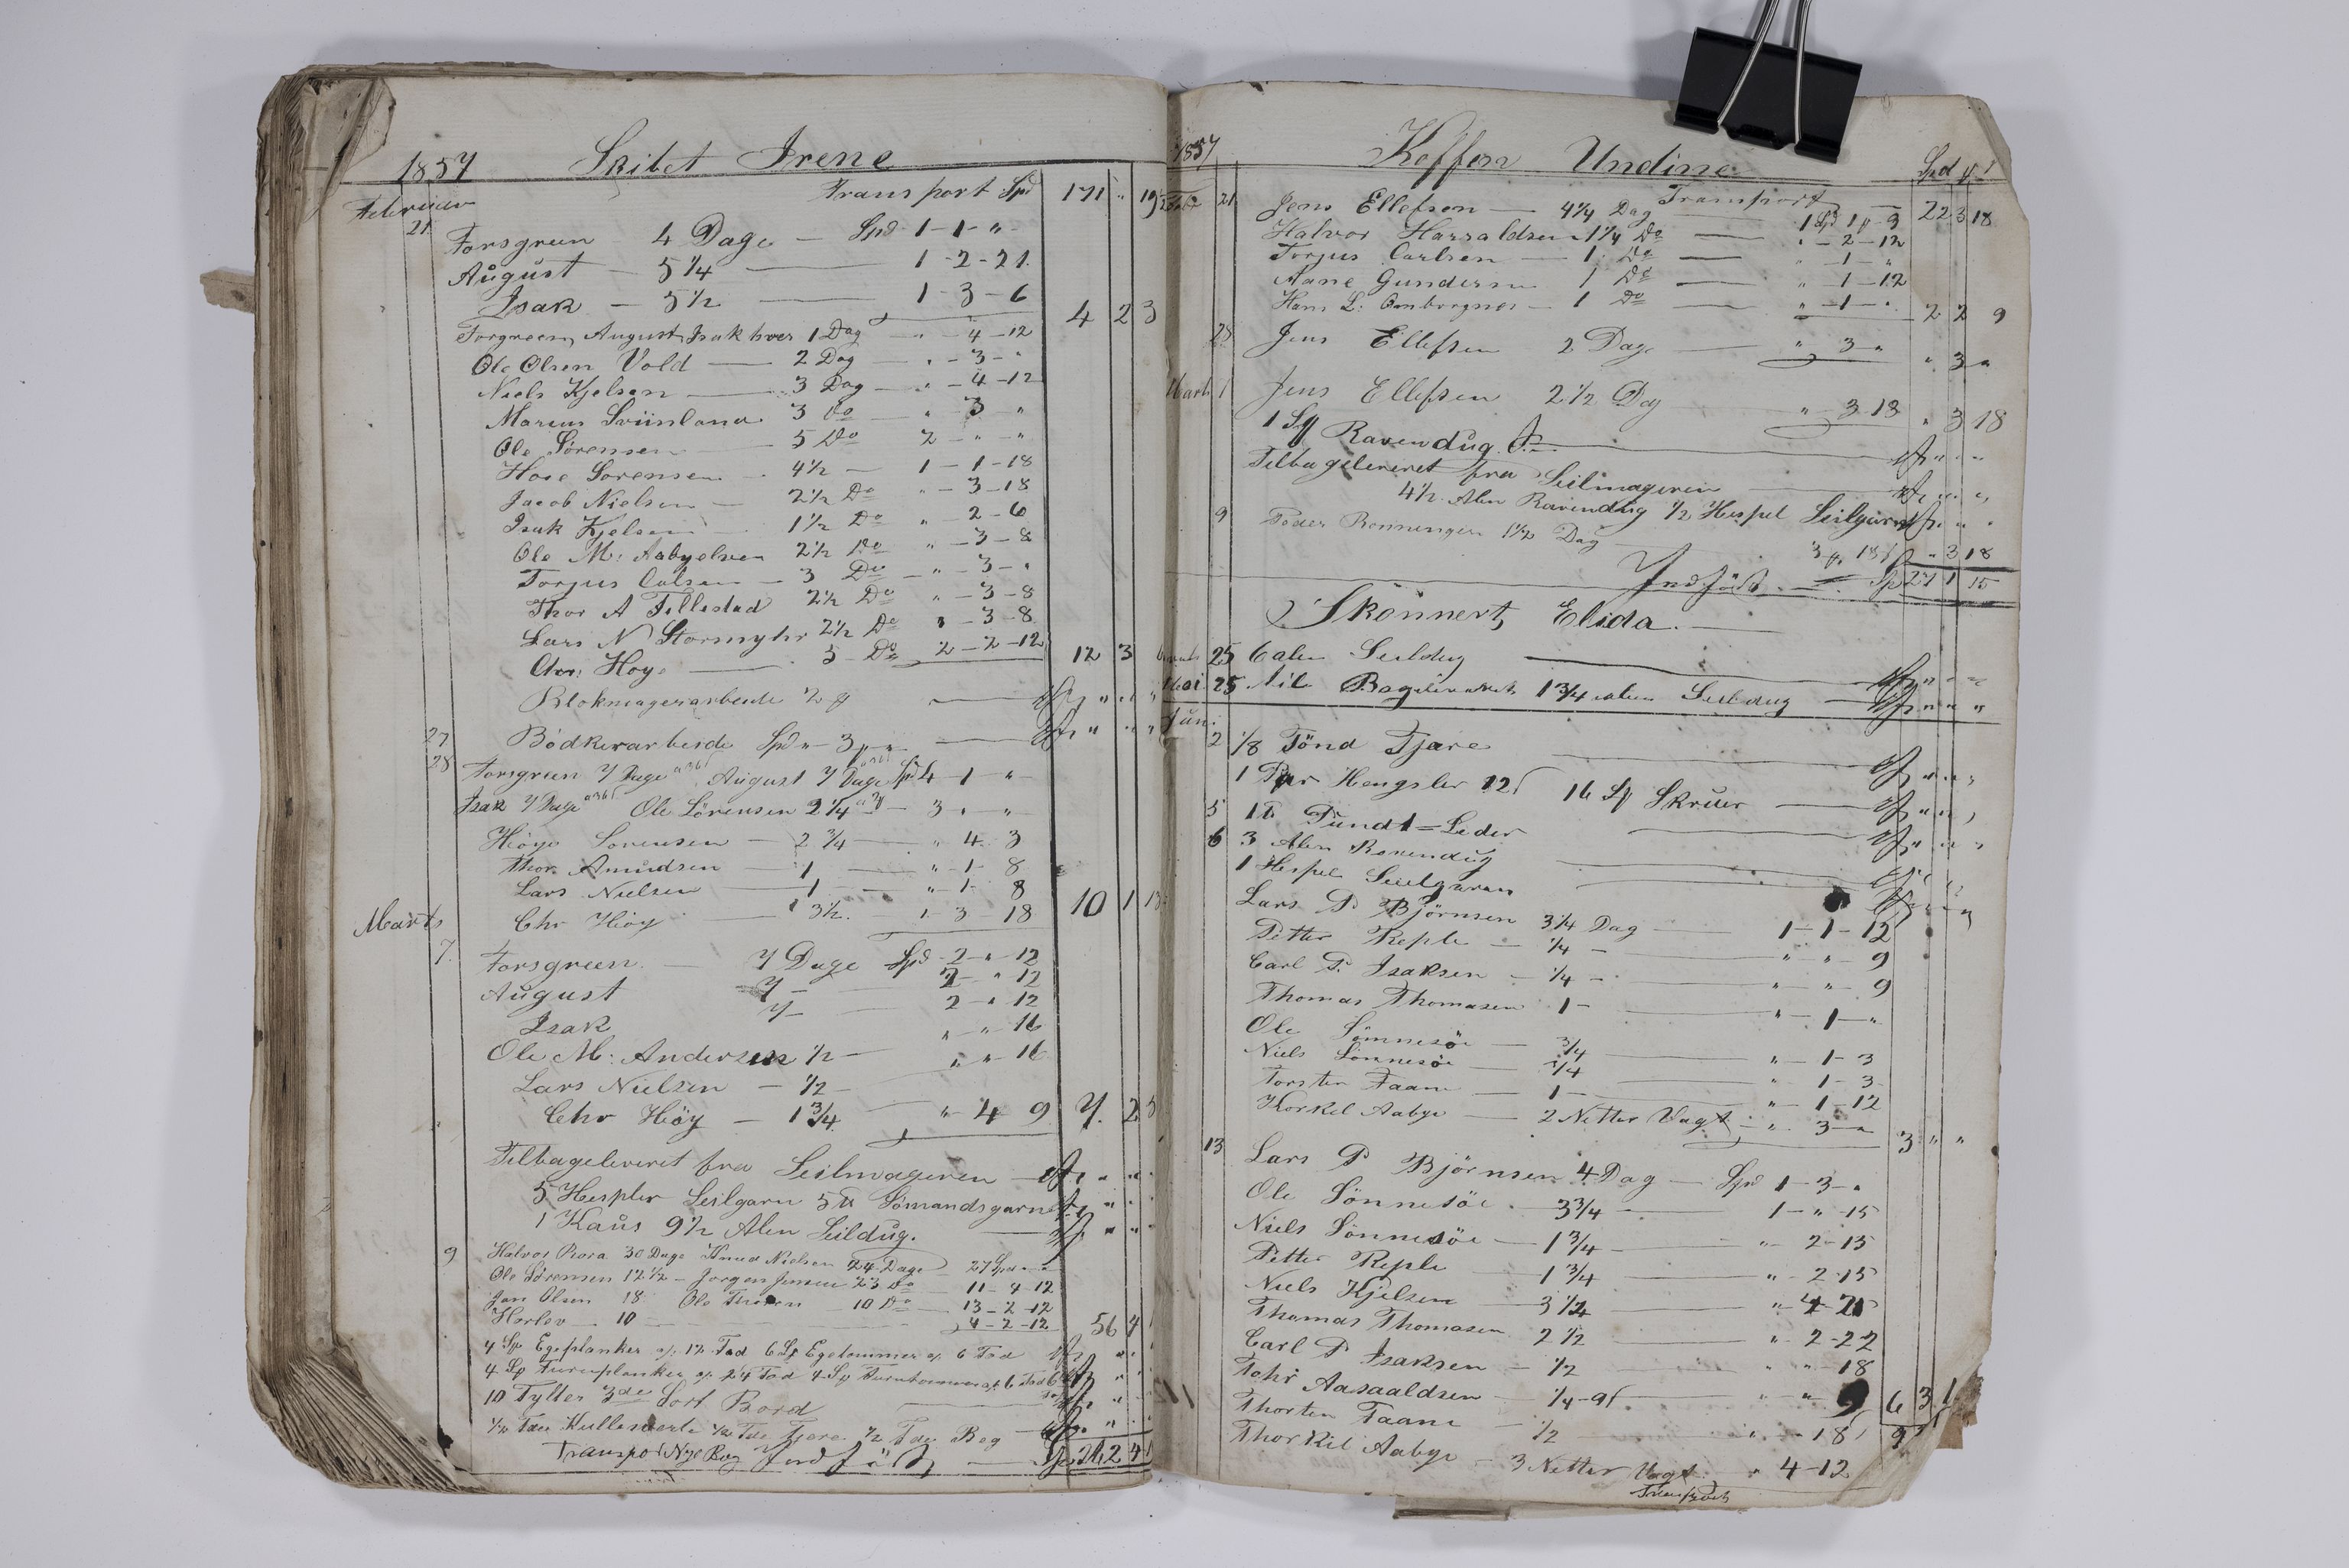 1857 Skibet Irene
Transport Spd 171 " 19
Februar
21 Forsgreen 4 Dage — Spd 1-1-"
August — 5 1/4 — 1-2-21
Isak — 5 1/2 — 1-3-6 4 2 3
Forgreen, August, Isak hver 1 Dag — " - 4-12
Ole Olsen Vold — 2 Dag — " - 3 - "
Niels Kjelsen — 3 Dag — " - 4-12
Marius 3 Do — " 3 "
Ole Sørensen — 5 Do 2 - " "
Sorensen 4 1/2 — 1-1-18
Jacob Nielsen — 2 1/2 Do " - 3-18
Isak Kjelsen — 1 1/2 Do " 2-6
Ole M: Aabyelven 2 1/2 Do " - 3-8
Torjus — 3 Do — " - 3 - "
Thor A Tellestad 2 1/2 Do " - 3-8
Lars N Stormyhr 2 1/2 Do " - 3-8
Chr: Høy — 5 — Do 2-2-12 12 3
Blokmagerarbeide
27 Bödkerarbeide Spd " - 3
28 Forsgreen 7 Dage August 7 Dage Spd 4 1 "
Isak 7 Dage Ole Sörensen 2 1/4 — 3 " "
Höye Sorensen — 2 3/4 — " 4 3
Thor Amundsen — 1 — " 1 - 8
Lars Nielsen — 1 — " 1 - 8
Chr Höy — 3 1/2 1-3-18 10 1 13
Marts
7 Forsgreen — 7 Dage Spd 2 - " - 12
August 7 — 2 " 12
Isak 7 — 2 - " 12
Ole M: Andersen 1/2 — " " 16
Lars Nielsen — 1/2 — " " 16
Chr Höy — 1 3/4 " - 4 9 7. 2 5
Tilbageleveret fra Seilmageren
5 Hespler Seilgarn 5 ℔ Sömandsgarn
1 Kaus 9 1/2 Alen Seildug.
9 Halvor Rora 30 Dage Knud Nielsen 24 Dage 27 Spd " "
Ole Sörensen 12 1/2 — Jorgen Jensen 23 Do 11-4-12
Jan Olsen 18 Ole 10 Do — 13-2-12
Herlov — 10 — 4-2-12 56 4
4 Sp Egeplanker 12 Fod 6 Sp Egetommer 6 Fod
4 Sp Furuplanker 24 Fod 4 Sp
10 Tylter 3de Sort Bord
1/2 Tde Tjære 1/2 Tde Beg
Transpo Nye Bog Indført — Sp 262 4
1857 Koffen Undine Spd
Transport — 22 3 18
21 Jens Ellefsen — 4 1/4 Dag — 1 Sp 1 - 9
Halvor Harraldsen 1 1/4 Do — " - 2-12
Torjus Carlsen — 1 Do — " - 1 - "
Aane Gundersen 1 Do — " 1-12
Hans L: — 1 Do — " - 1 - " 2 2 9
28 Jens Ellefsen 2 Dage " 3 " " 3 "
Marts 1 Jens Ellefsen 2 1/2 Dag — " - 3 18 " 3 18
1 Sp Ravendug
Tilbageleveret fra Seilmageren
4 1/2 Alen Ravendug 1/2 Hespel Seilgarn
9 Peder Ronningen 1 1/2 Dag " 3 18
Indført. Sp 27 1 15
Skonnert, Elida.
25 6 alen Seildug
Mai 25 Til Bageleveret 1 3/4 alen Seildug
Juni
2 1/8 Tönd Tjære
1 Par Hengsler 12 16 Sp Skruer
5 1 ℔ Pundt = Leder
6 3 Alen Ravendug
1 Hespel Seilgaren
Lars P Björnsen 3 1/4 Dag — 1-1-12
Petter Reple — 1/4 — " " 9
Carl P. Isaksen — 1/4 — " - " - 9
Thomas Thomasen 1 — " - 1 - "
Ole Sönnesöe — 3/4 — " - 1-3
Niels Sönnesöe — 3/4 — " - 1-3
Torsten Faane — 1 — " - 1-12
Thorkel Aabye — 2 Netter Vagt — " 3 — " 3 " "
13 Lars P Björnsen 4 Dag — Spd 1-3-"
Ole Sönnesöe — 3 3/4 — 1 - " 15
Niels Sönnesöe — 1 3/4 — " 2-15
Petter Reple — 1 3/4 — " 2-15
Niels Kjelsen — 3 1/2 — " 4-21
Thomas Thomasen 2 1/2 — " 2-22
Carl P Isaksen — 1/2 — " " 18
Tohr Aasaaldsen — 1/4 — 9 " - " 9 6 3 1
Thorten Faane 1/2 — " - 18
Thorkil Aabye — 3 Netter Vagt " 4-12
Transport